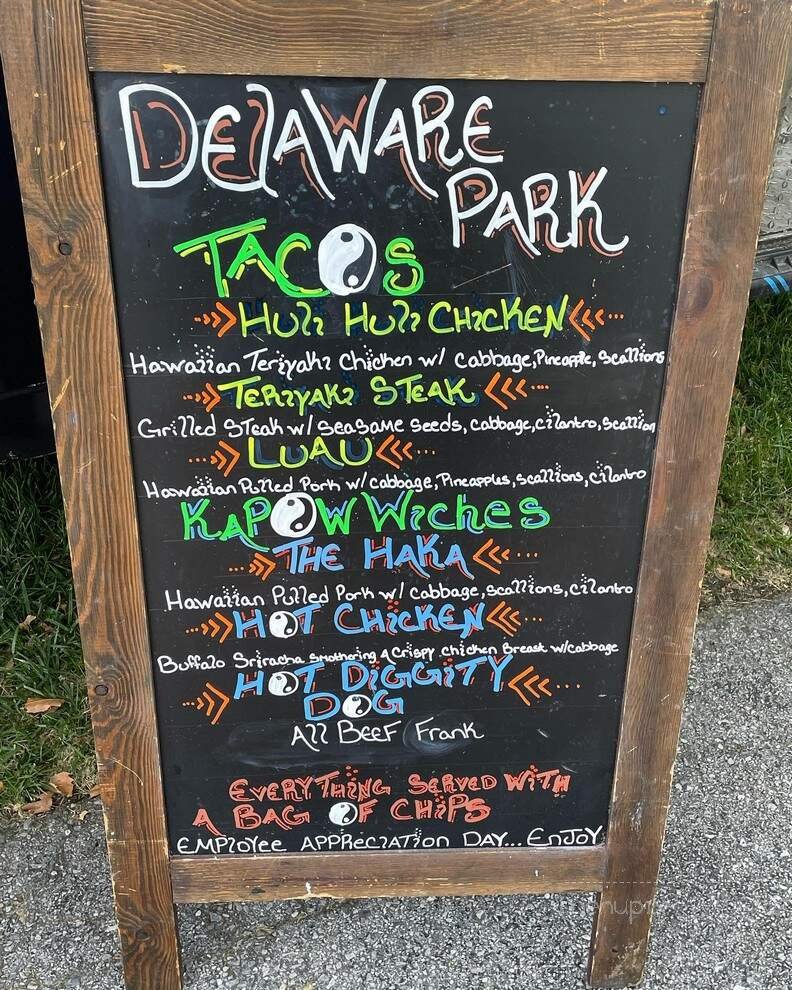 DELAWARE
PARK
TACOS
HULI HULI CHICKEN
Hawaiian Teriyaki Chicken w/ cabbage, Pineapple, Scallions
TERIYAKI STEAK
Grilled STeak w/ Seasame seeds, cabbage, cilantro, Scallion
LUAU
Hawaiian Pulled Pork w/ cabbage, Pineapples, scallions, cilantro
KAPOW Wiches
THE HAKA
Hawaiian Pulled Pork w/ cabbage, scallions, cilantro
HOT CHICKEN
Buffalo Sriracha Smothering A Crispy chicken Breast w/cabbage
HOT DIGGITY
DOG
All BeeF Frank
EVERYTHING SERVED WITH
A BAG OF CHIPS
EMPloyee APPReciATion DAY... EnJoY